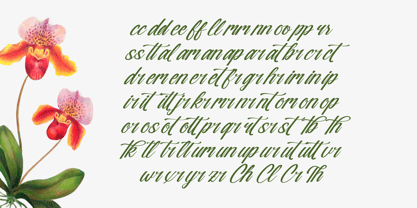 cc dd ee ff ll rr nn oo pp ss
ss tt al am an ap ar at br cr ct
dr em en er et fr gr hr im in ip
ir it itt jr kr mr nr nt om on op
or os ot ott pr qr rt sr st tb th
tk tl tr tt um un up ur ut utt vr
wr xr yr zr Ch Cl Cr Th